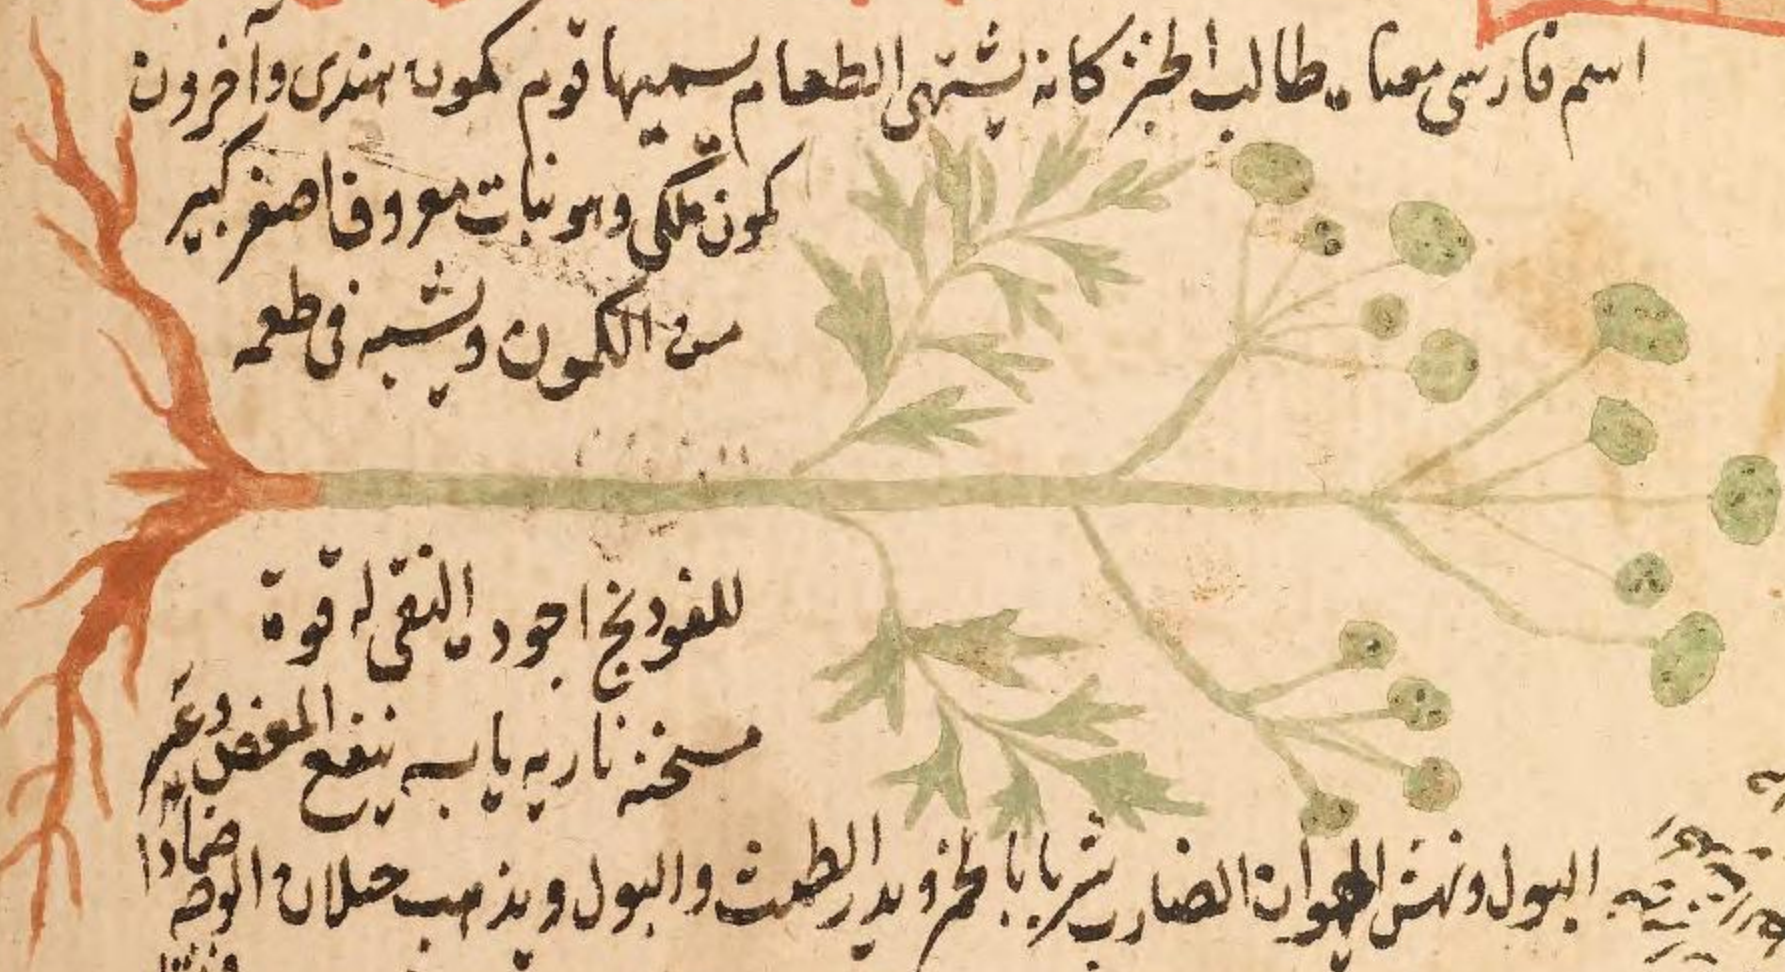 اسم فارسى معناه طالب الخبز كانه يشتهى الطعام يسميها قوم كمون هندى وآخرون
كمون ملكى وهو نبات معروف اصغر كثير
من الكمون ويشبه فى طعمه
للفودنج اجوده النقى له قوة
مسخنة نارية يابسه ينفع المغص وعسر
البول ونهش الهوان الضارب شربا بالخمر ويدر الطمث والبول ويذهب حملان الوجه ضمادا